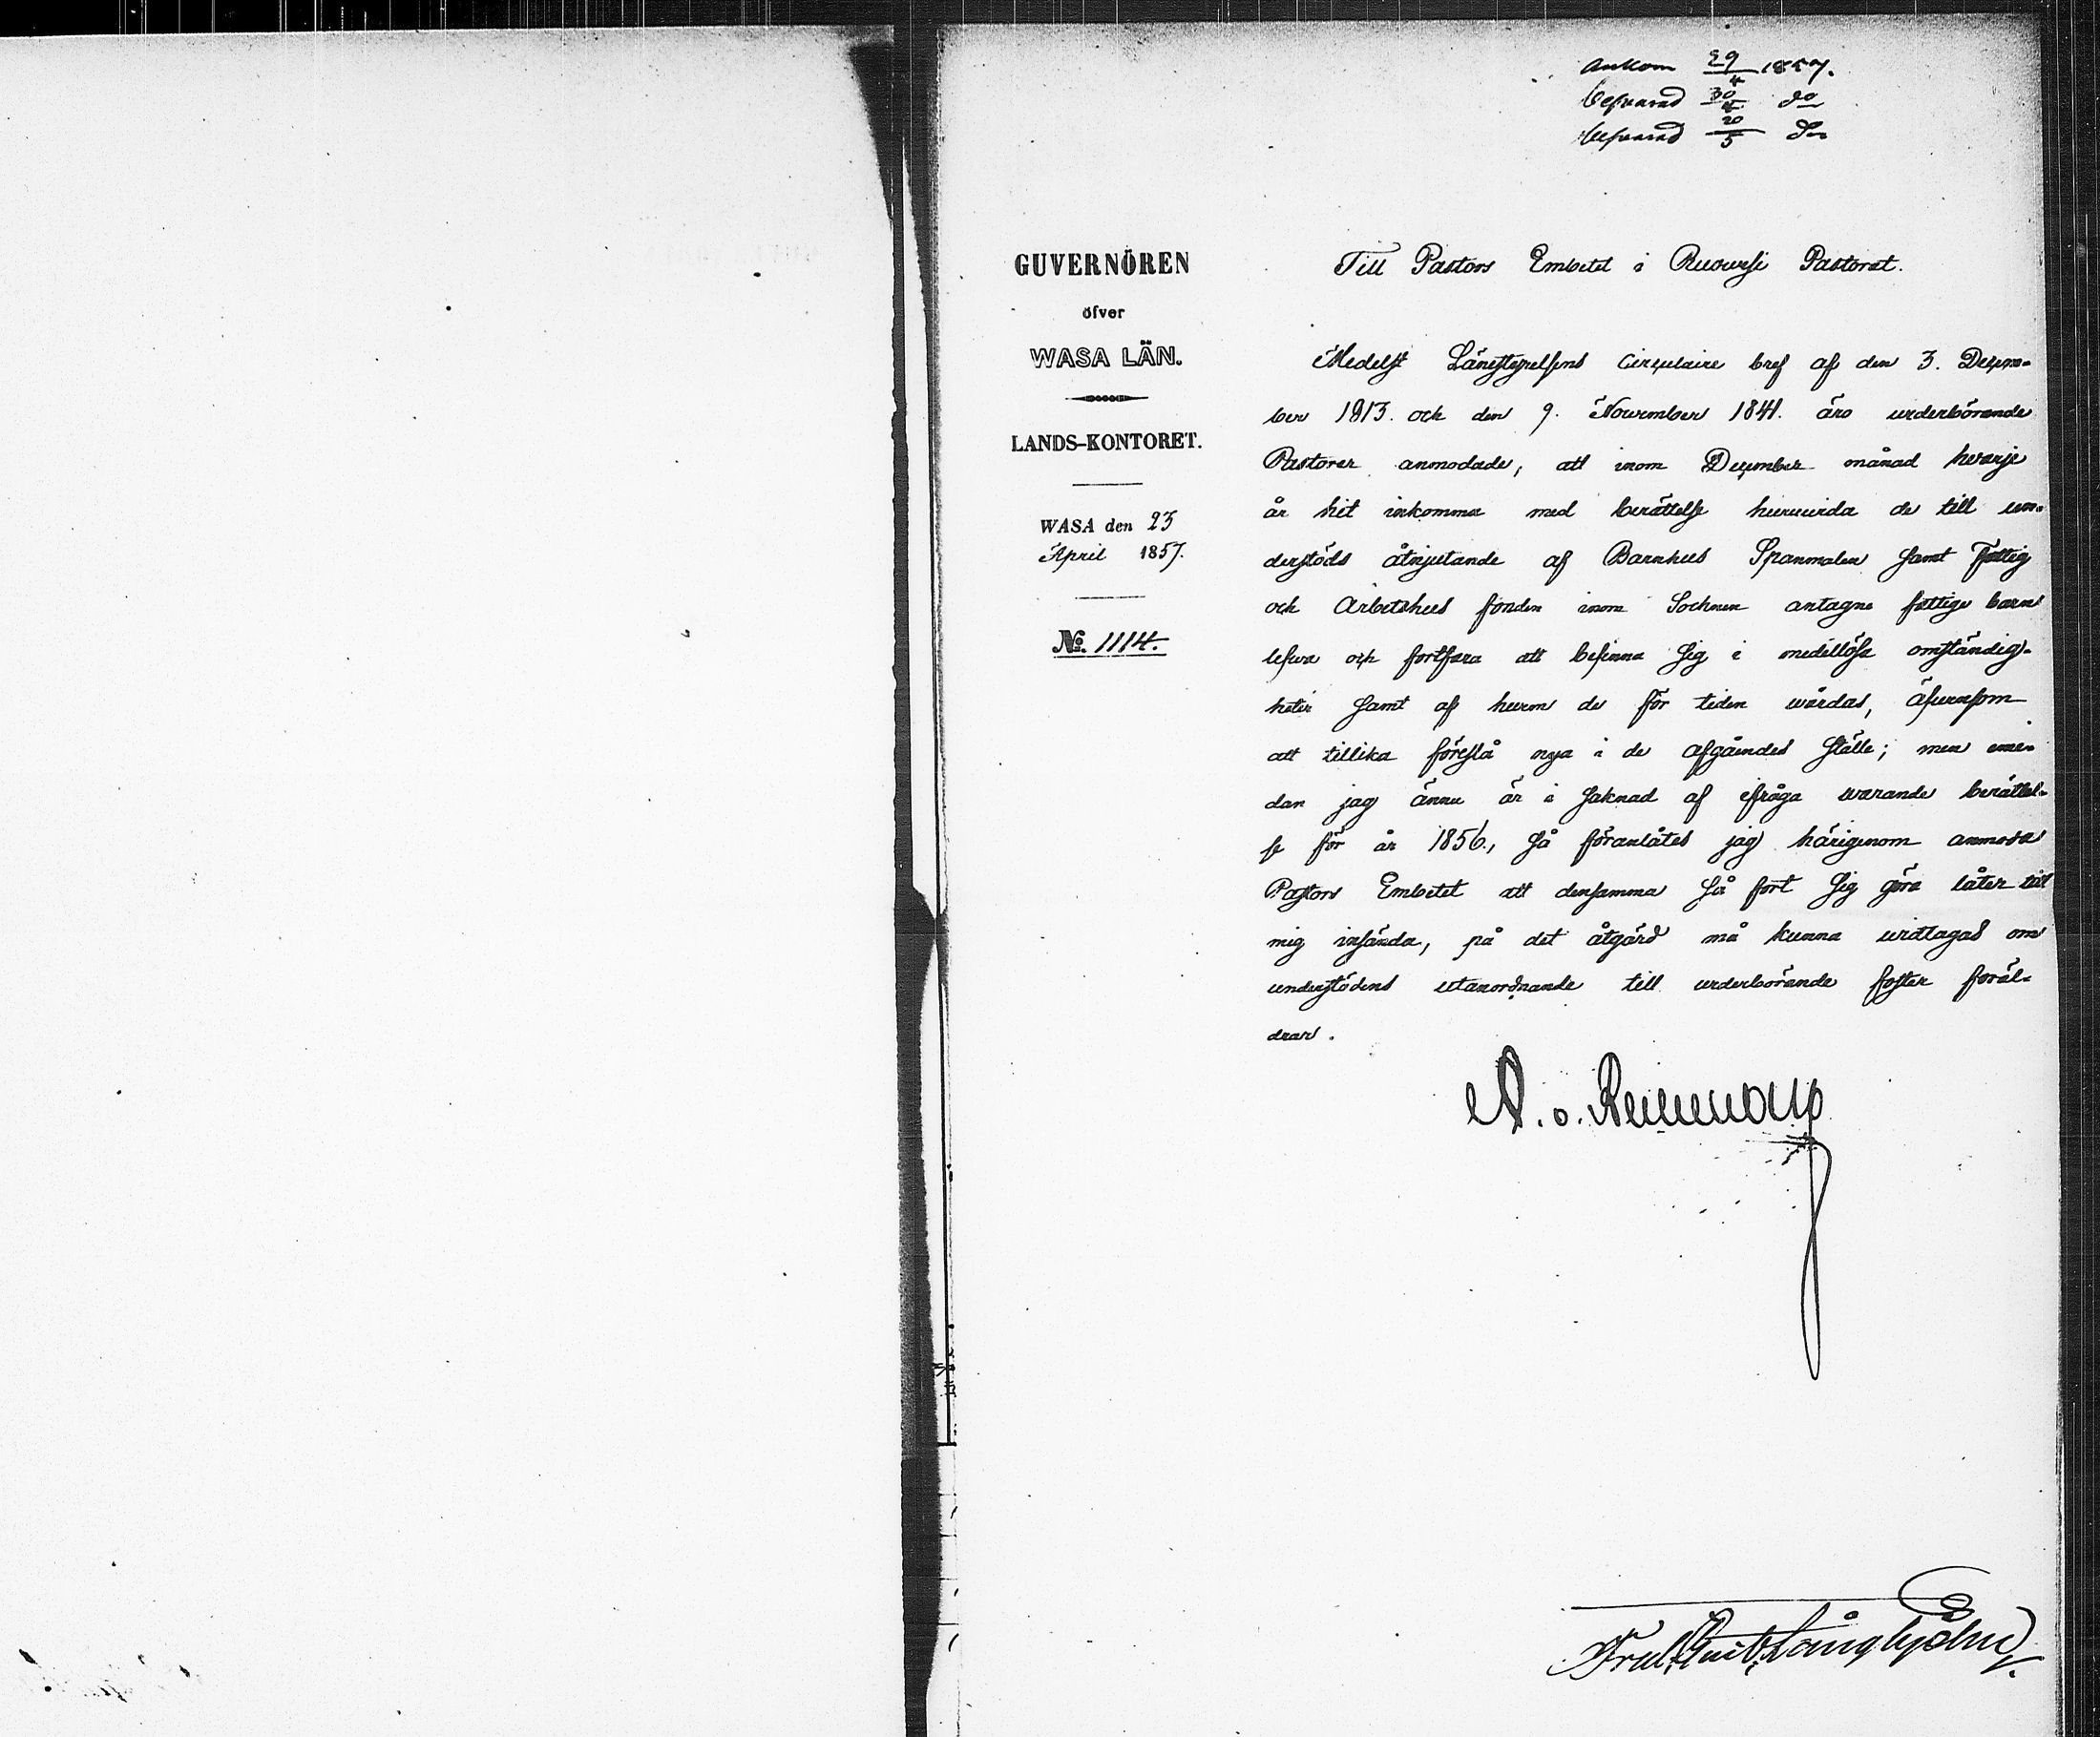 Ankom 29/4 1857.
besvarad 30/4 do
besvarad 20/5 do
GUVERNÖREN
öfver
WASA LÄN.
LANDS-KONTORET.
WASA den 23
April 1857.
No. 1114.
Till Pastors Embetet i Ruovesi Pastorat.
Medelst Länestyrelsens Circulaire bref af den 3. Decem-
ber 1813. och den 9. November 1841. äro wederbörande
Pastorer anmodade, att inom December månad hvarje
år hit inkomma med berättelse huruvida de till un-
derstöds åtnjutande af Barnhus Spanmålen samt Fattig
och Arbetshus fonden inom Socknen antagne fattige barn
lefva och fortfara att befinna sig i medellösa omständig-
heter samt af hvem de för tiden wårdas, äfvensom
att tillika föreslå nya i de afgåendes ställe; men eme-
dan jag ännu är i saknad af ifråga warande berättel-
se för år 1856., så föranlåtes jag härigenom anmoda
Pastors Embetet att densamma så fort sig göra låter till
mig insända, på det åtgärd må kunna widtagas om
understödens utanordnande till wederbörande foster föräl-
drar.
Fred. Gust. Långhjelm